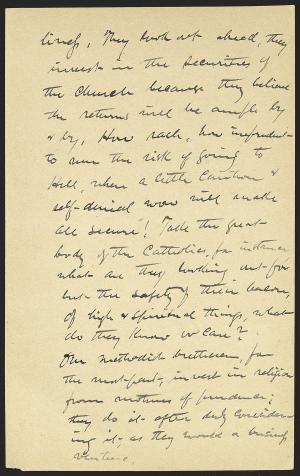 liness, They look out ahead, they
invest in the securities of
the Church because they believe
the returns will be ample by
& by, How rash, how imprudent
to run the risk of going to
Hell, when a little Caution &
self-denial now will make
all secure"! Take the great
body of the Catholics, for instance
what are they looking out for
but the safety of their bacon,
of high & spiritual things, what
do they know or care?
Our Methodist brethren, for
the most part, invest in religion
from motives of prudence;
they do it after duly consider-
ing it as they would a business
venture,